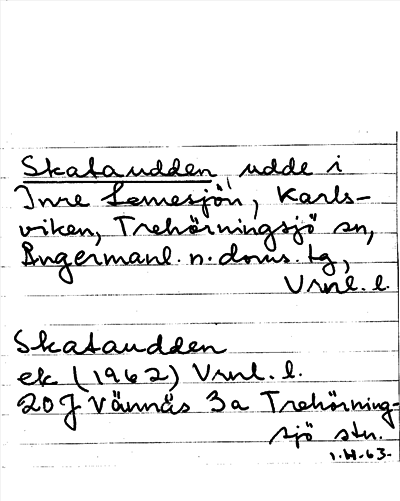 Skataudden, udde i
Inre Lemesjön, Karls-
viken, Trehörningsjö sn,
Ångermanl. n. doms. tg,
Vrnl. l.
Skataudden
ek (1962) Vrnl. l.
20 J Vännäs 3a Trehörning-
sjö stn.